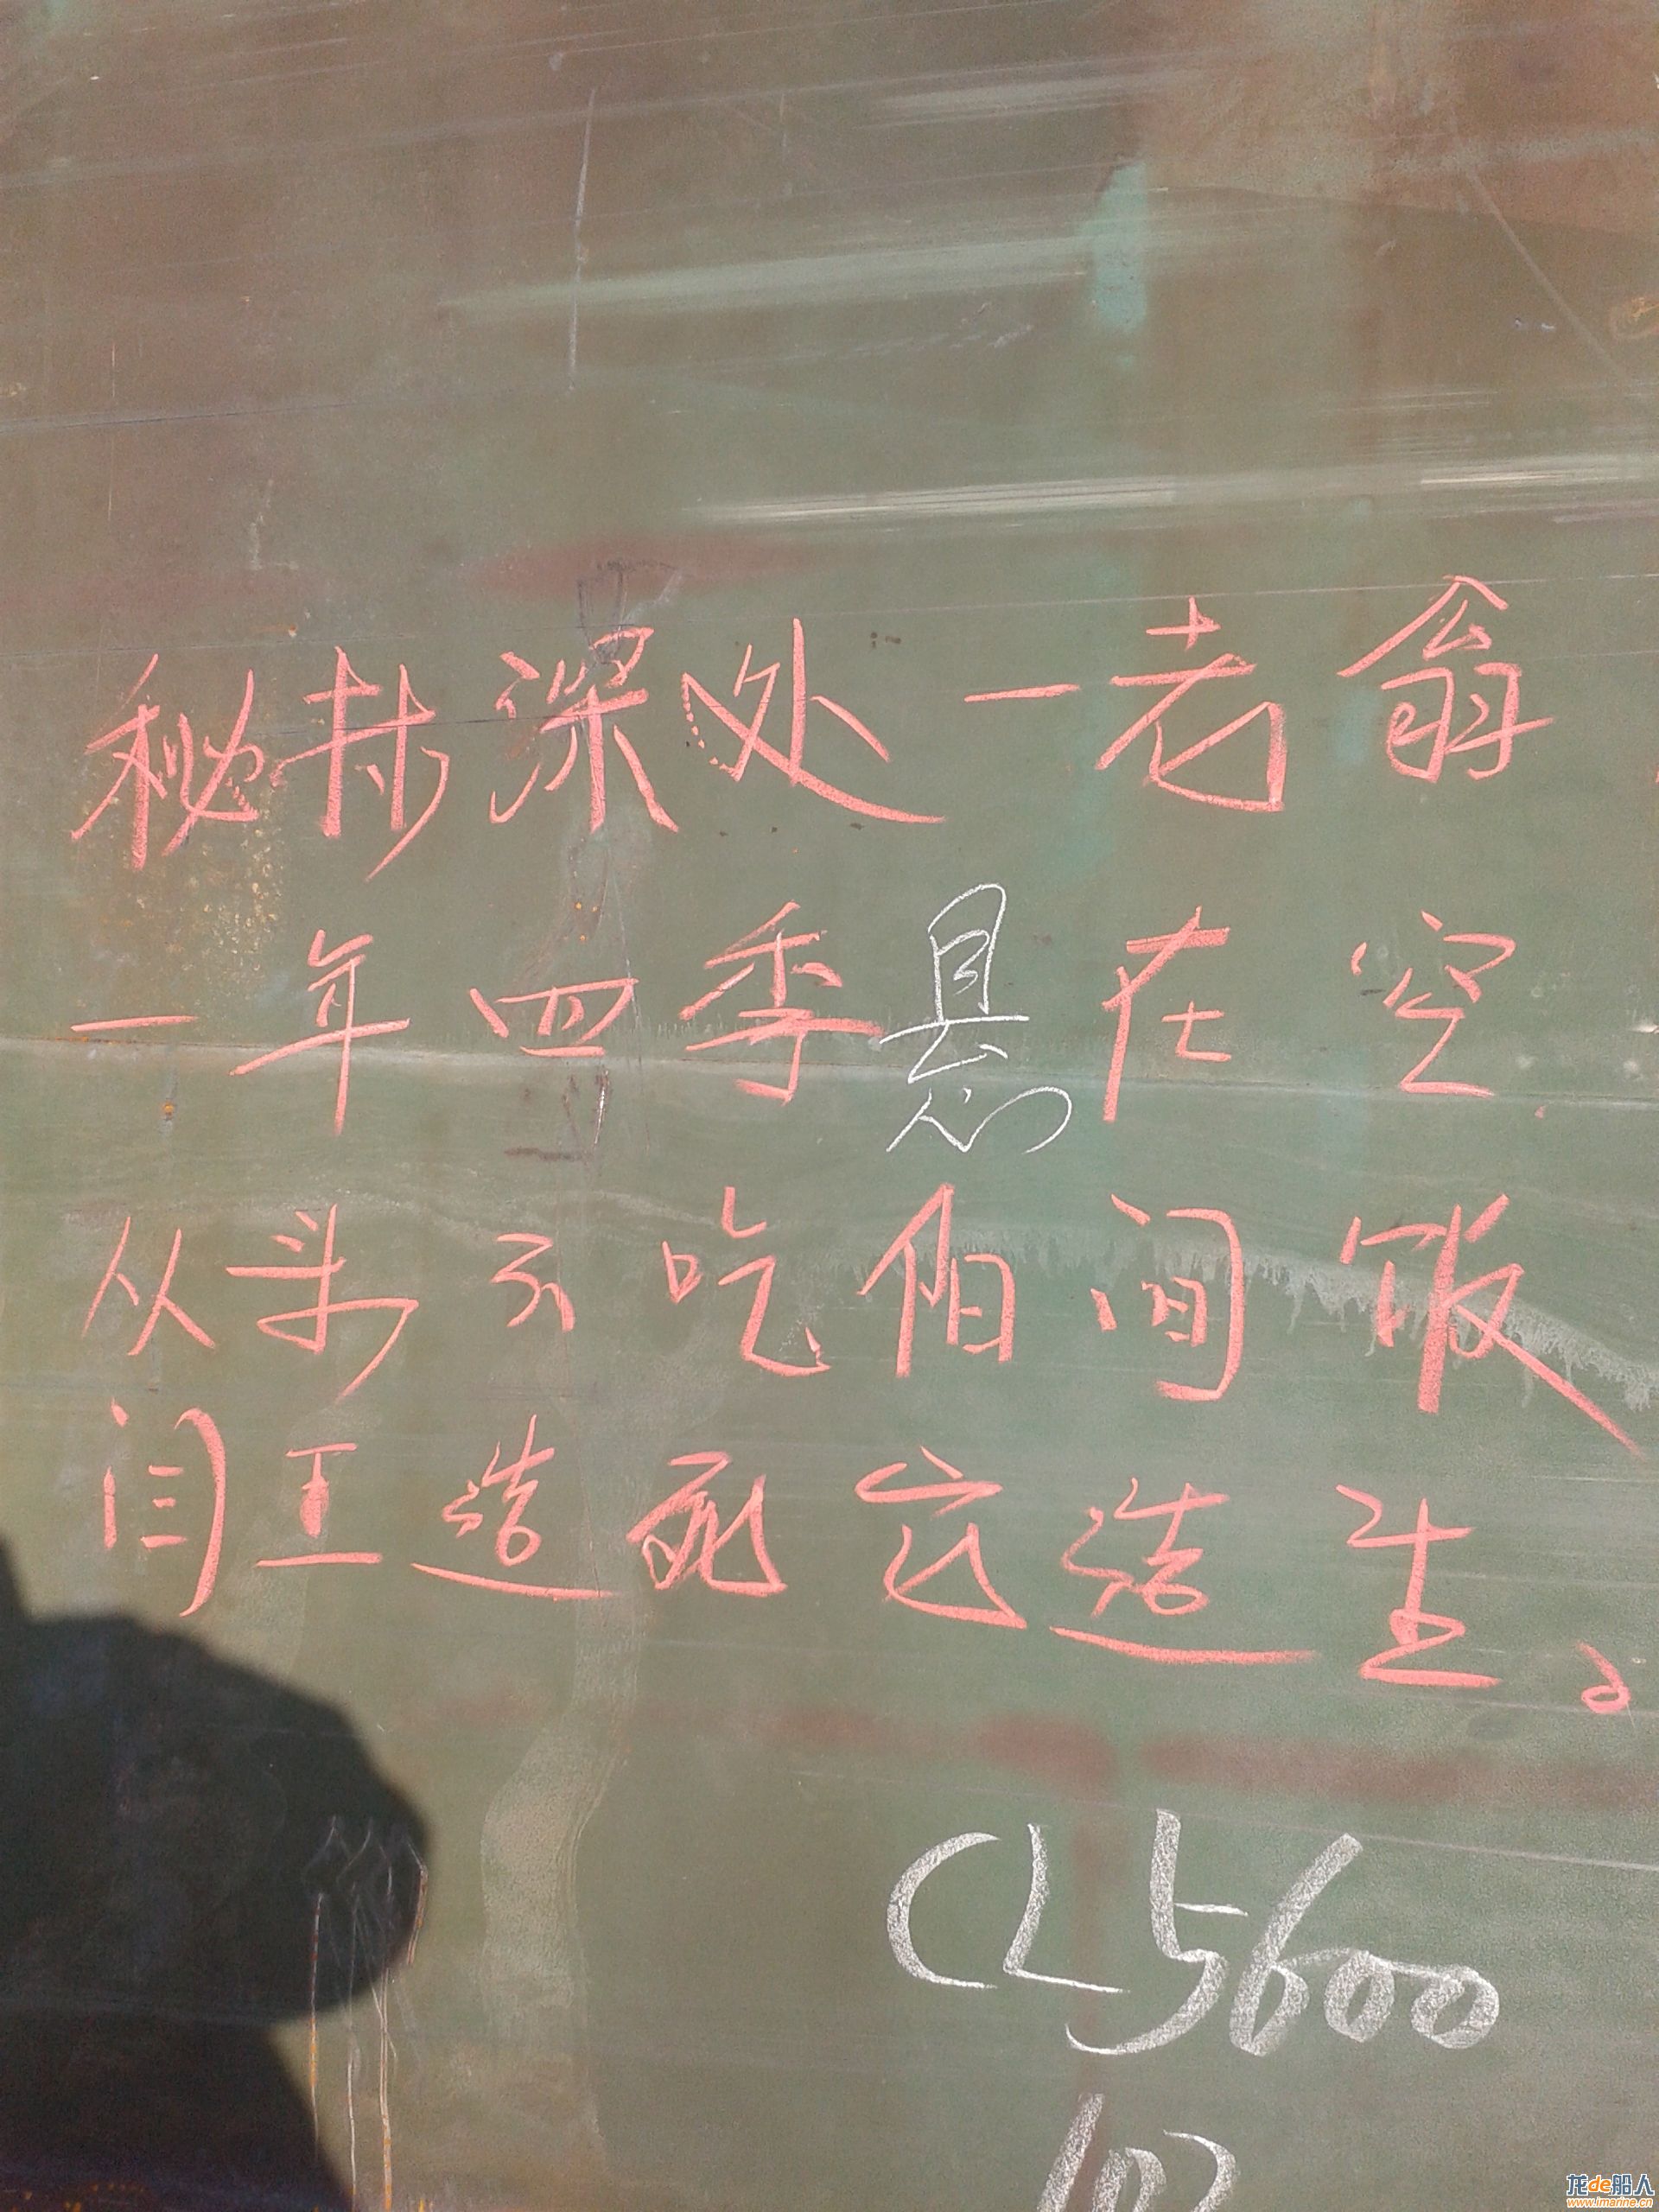 秘林深处一老翁
一年四季悬在空
从头不吃阳间饭
闫王造死它造生。
CL5600
102
龙de船人
www.imarine.cn